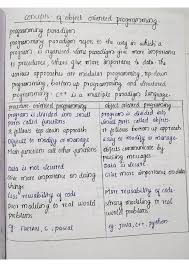 concepts of object oriented programming
programming paradigm
programming paradigm refers to the way in which a
program is organised some paradigms give more importance
to procedures, others give more importance to data. The
various approaches are modular programming, top down
programming, bottom up programming and structured
programming C++ is a multiple paradigm language.
procedure oriented programming
program is divided into small
parts called functions
it follows top down approach
Difficult to modify or manage
Main function call other functions
Data is not secured
Give more importance on doing
things
Less reusability of code
poor modeling to real world
problems
eg: C, pascal
object oriented programming
program is divided into
small parts called objects
it follows bottom up approach
easy to modify or manage
objects communicate by
passing messages
Data is secured
Give more importance to
data
More reusability of code
strong modeling to real
world problems
eg: java, C++, python